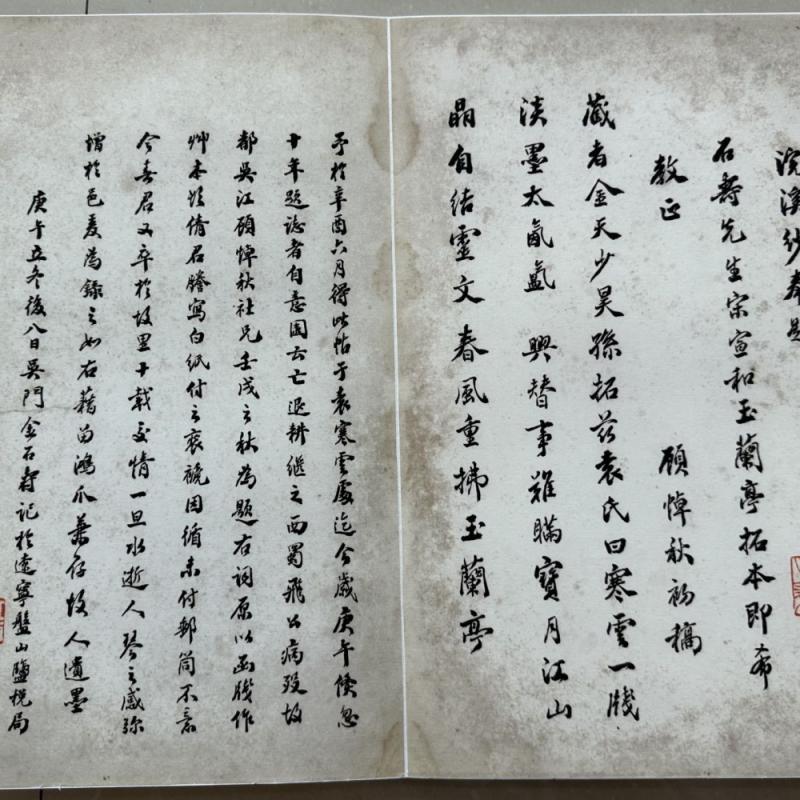 浣溪紗奉題
石壽先生宋宣和玉蘭亭拓本即希
教正
顧悼秋初稿
藏者金天少昊孫拓茲袁氏曰寒雲一牋
淡墨太氤氳 興替事難瞞寶月江山
晶自結靈文春風重拂玉蘭亭
予於辛酉六月得此帖于袁寒雲處迄今歲庚午倏忽
十年題識者自意園云亡退耕繼之西蜀飛公病歿故
都吳江顧悼秋社兄壬戌之秋為題右詞原以函牋作
艸本并倩君謄寫白紙付之裝池因循未付郵筒不意
今春君又卒於故里十載交情一旦水逝人琴之感弥
增於邑爰為錄之如右藉留鴻爪兼存故人遺墨
庚午立冬後八日吳門金石壽記於遼寧盤山鹽稅局